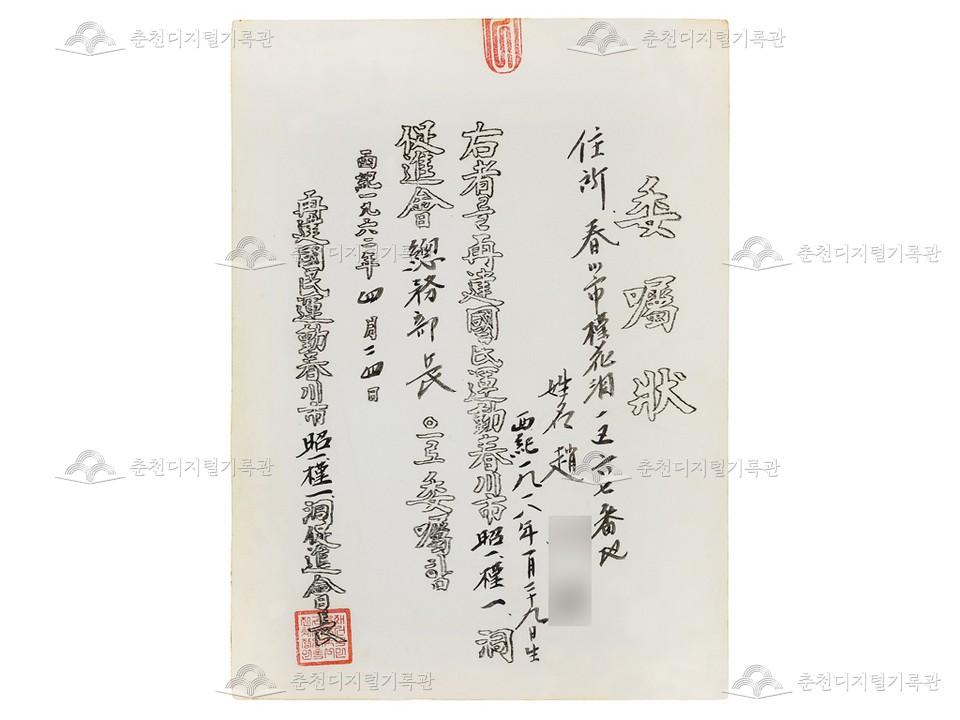 委囑狀
住所 春川市槿花洞一五六七番地
姓名 趙
西紀一九一八年一月二十九日生
右者를 再建國民運動春川市 昭一、槿一 洞
促進會 總務部長 으로 委囑함
西紀一九六二年 四月二四日
再建國民運動春川市 昭一、槿一 洞促進會長
춘천디지털기록관
춘천디지털기록관
춘천디지털기록관
춘천디지털기록관
춘천디지털기록관
춘천디지털기록관
춘천디지털기록관
춘천디지털기록관